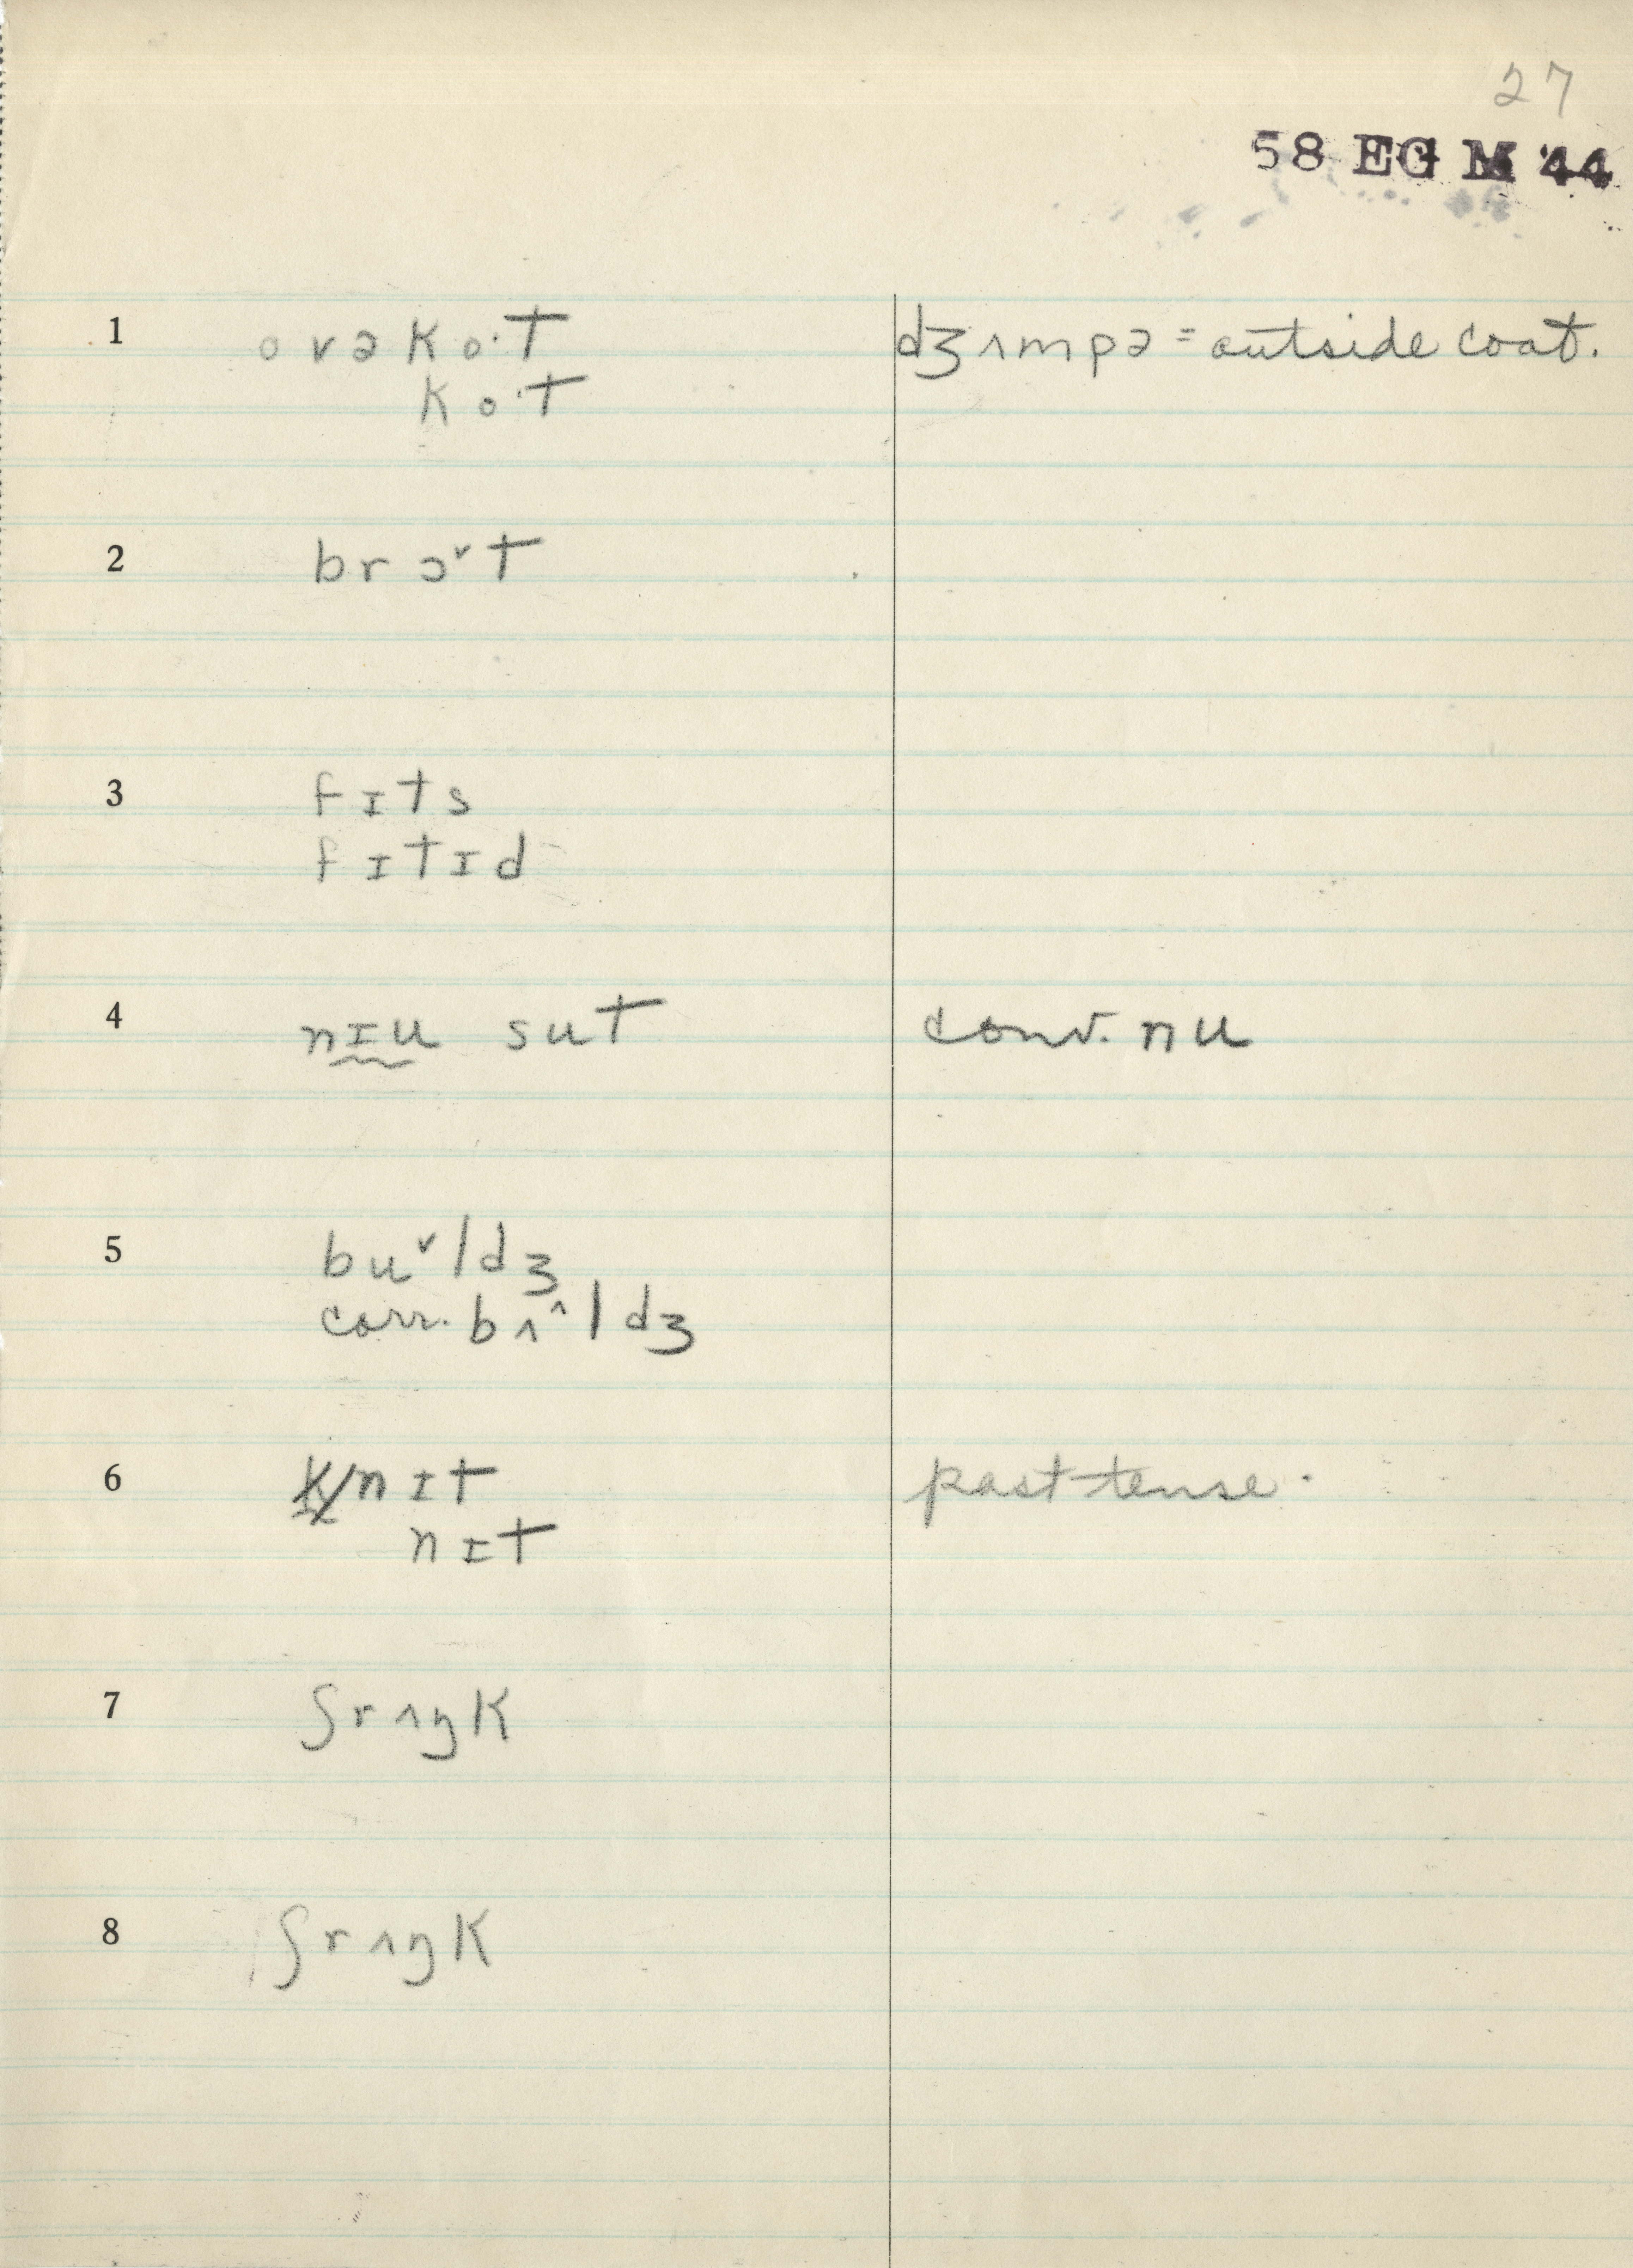 27
58 EG M 44
1 ovəko·t dʒʌmpə = outside coat.
ko·t
2 brɔˇt
3 fɪts
fɪtɪd
4 nɪu sut conv. nu
5 buˇldʒ
corr. bʌ^ldʒ
6 k/nɪt past tense.
nɪt
7 ʃrʌŋk
8 ʃrʌŋk